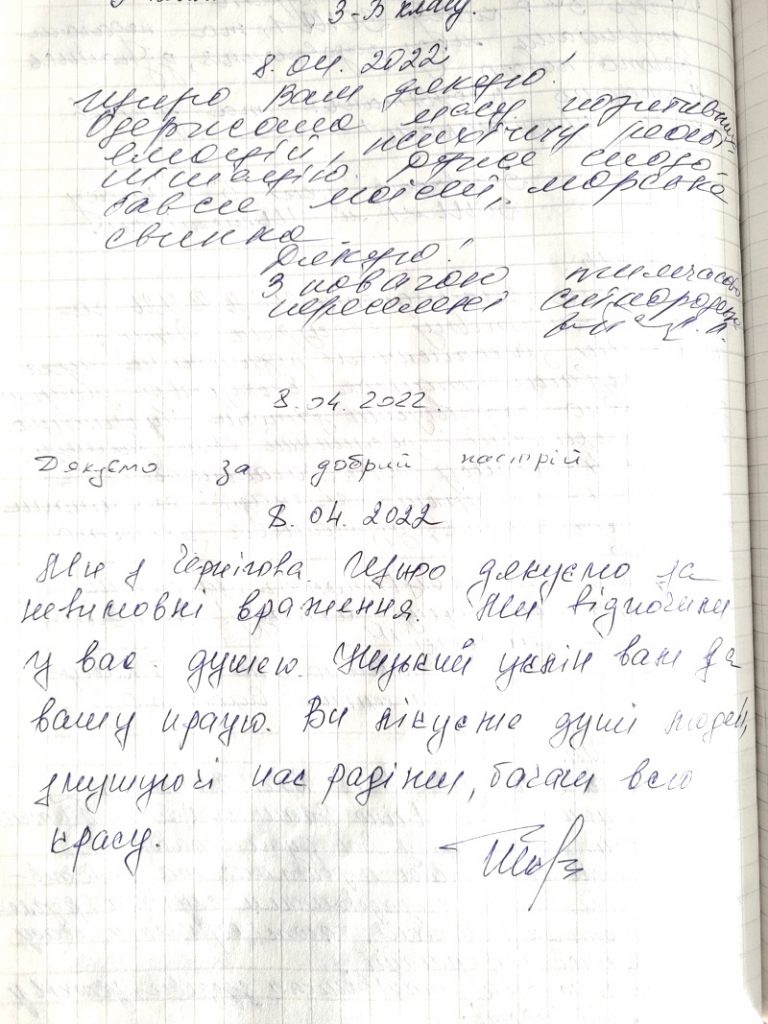 3-Б класу.
8.04.2022
Щиро Вам дякую!
Одержала масу позитивних
емоцій, психічну реабі-
літацію. Дуже сподо-
бався морська
свинка
Дякую!
З повагою тимчасово
переселені
8.04.2022.
Дякуємо за добрий настрій
8.04.2022
Ми з Чернігова. Щиро дякуємо за
невимовні враження. Ми відпочили
у вас душею. Низький уклін вам за
вашу працю. Ви лікуєте душі людей,
змушуючі нас радіти, бачити всю
красу.